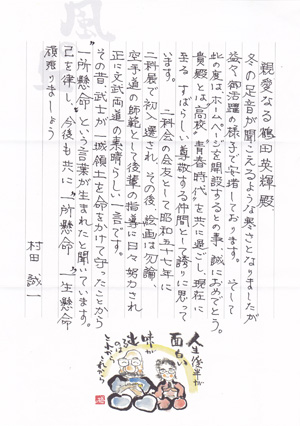 親愛なる鶴田英輝殿
冬の足音が聞こえるような寒さになりましたが
益々御活躍の様子で安堵しております。そして
此の度は、ホームページを開設するとの事、誠におめでとう。
貴殿とは高校、青春時代を共に過ごし、現在に
至る すばらしい、尊敬する仲間として誇りに思って
います。 二科会の会友として昭和五十七年に
二科展で初入選され、その後、絵画は勿論、
空手道の師範として後輩の指導に日々努力され
正に文武両道の素晴らしい一言です。
その昔、武士が一城領土を命をかけて守ったことから
"一所懸命"という言葉が生まれたと聞いています。
己を律し、今後も共に"一所懸命 一生懸命"
頑張りましょう
村田 誠一
人生後半が
面白い
味が
出
るのは
これから
これから